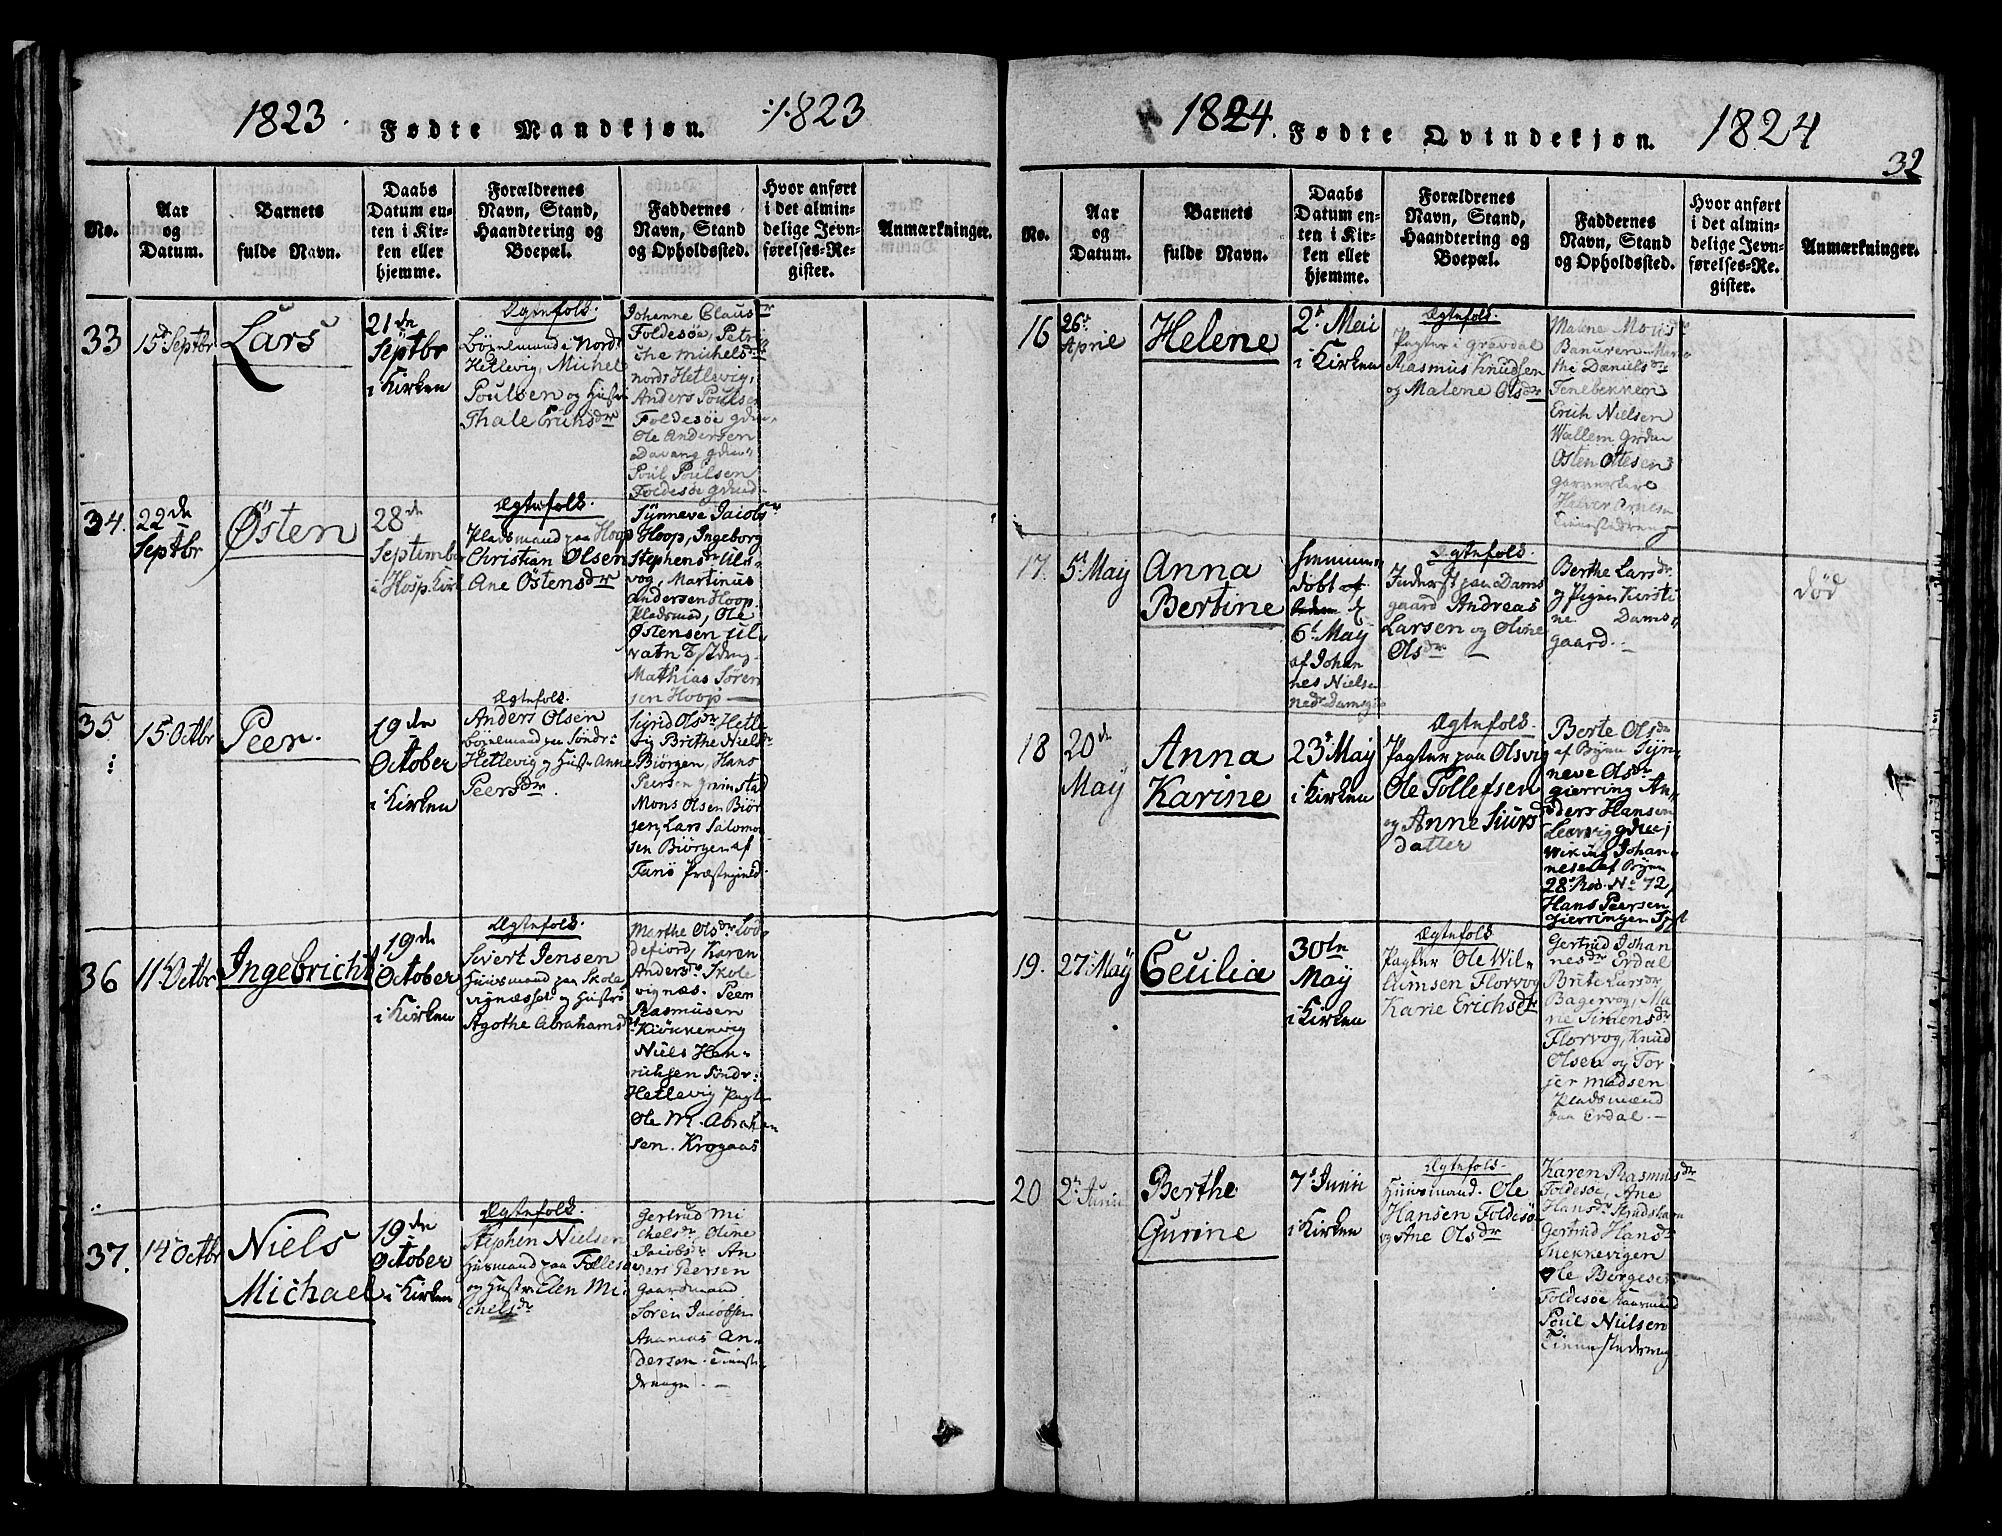 1823. Fødte Mandkjøn. 1823
No.
Aar
og
Datum.
Barnets
fulde Navn.
Daabs
Datum en-
ten i Kir-
ken eller
hjemme.
Forældrenes
Navn, Stand,
Haandtering og
Boepæl.
Faddernes
Navn, Stand
og Opholdssted.
Hvor anført
i det almin-
delige Jevn-
førelses-Re-
gister.
Anmærkninger.
33
15d Septbr
Lars
21de
Septbr
i Kirken
Ægtefolk.
Nordr
Hetlevig, Michel
Poulsen og Hustr
Thale Erichsdr
Johanne Clausdr
Foldesøe, Petri
che Michelsdr
nordr Hetlevig,
Anders Poulsen
Foldesøe
Ole Andersen
Poul Poulsen
Foldesøe
34.
22de
Septbr
Østen
28de
September
i Hosp. Kirk
Ægtefolk.
Pladsmand paa Hoop
Christian Olsen
Ane Østensdr
Synneve Jacobsdr
Hoop, Ingeborg
Stephensdr Ul-
vog, Martinus
Andersen Hoop
Pladsmd, Ole
Østensen Ul-
vatn
Mathias Søren
sen Hoop
35
15 Octbr
Peer.
19de
October
i Kirken
Ægtefolk.
Anders Olsen
paa Søndr:
Hetlevig og Hustr Anne
Peersdr.
Sigrid Olsdr Hetle
vig Brithe Nielsdr
Biørgen, Hans
Peersen
Mons Olsen Biør
gen, Lars Salomon
sen Biørgen af
Fanø Præstegield
36
11 Octbr
Ingebricht
19de
October
i Kirken
Ægtefolk.
Sivert Jensen
Huusmand paa Skole
vignæsset og Hustrø
Agothe Abrahamsdr
Marthe Olsdr Lod
defiord, Karen
Andersdr Skole
vignæs. Peer
Rasmusen
Kiøkkenvig
Niels Hen-
richsen Søndr:
Hetlevig Pagt
Ole M. Abraham
sen. Krogaas
37.
14 Octbr
Niels
Michael
19de
October
i Kirken
Ægtefolk.
Stephen Nielsen
Huusmand paa Follesøe
og Hustr Elen Mi
chelsdr
Gertrud Mi
chelsdr, Oline
Jacobsdr An
ders Peersen
Gaardmand
Søren Jacobsen
Ananias An-
dersen. Tieneste
drenge. —
1824. Fødte Qvindekjøn. 1824
32
No.
Aar
og
Datum.
Barnets
fulde Navn.
Daabs
Datum en-
ten i Kir-
ken eller
hjemme.
Forældrenes
Navn, Stand,
Haandtering og
Boepæl.
Faddernes
Navn, Stand
og Opholdssted.
Hvor anført
i det almin-
delige Jevn-
førelses-Re-
gister.
Anmærkninger.
16
26d
Aprie
Helene
2d Mai
i Kirken
Ægtefolk.
Pagter i Gravdal
Rasmus Knudsen
og Malene Olsdr
Malene Monsdr
the Danielsdr
Erich Nielsen
Wallem
Osten Ottesen
17.
5 May
Anna
Bertine
hiemme-
døbt
6d May
af Johan
nes Nielsen
nedr Damsg
Ægtefolk.
Inderst paa Dams
gaard Andreas
Larsen og Oline
Olsdr
Berthe Larsdr
og Pigen Kirsti
ne Dams-
gaard. —
død
18
20de
May
Anna
Karine
23d May
i Kirken
Ægtefolk.
Pagter paa Olsvig
Ole Tollefsen
og Anne Siurs
datter
Berte Olsdr
af Byen Syn-
neve Olsdr
Gierring An-
ders Hansen
Leervig
Johan-
nesen af Byen
28d Rod. No 72,
Hans Peersen
Gierringen
19.
27d May
Cecilia
30te
May
i Kirken
Ægtefolk
Pagter Ole Wil-
lumsen Florvog
Karie Erichsdr
Gertrud Johan
nesdr Erdal
Brite Larsdr
Bagervog, Ma
rie Simensdr
Florvog, Knud
Olsen og Tor
jer Madsen
Pladsmænd
paa Erdal. —
20
2n Junii
Berthe
Gurine
7d Junii
i Kirken
Ægtefolk.
Huusmand. Ole
Hansen Foldesøe
og Ane Olsdr
Karen Rasmusdr
Foldesøe, Ane
Hansdr
Gertrud Hansdr
Snekkevigen
Ole Børgesen
Foldesøe
Poul Nielsen
Tienestedreng